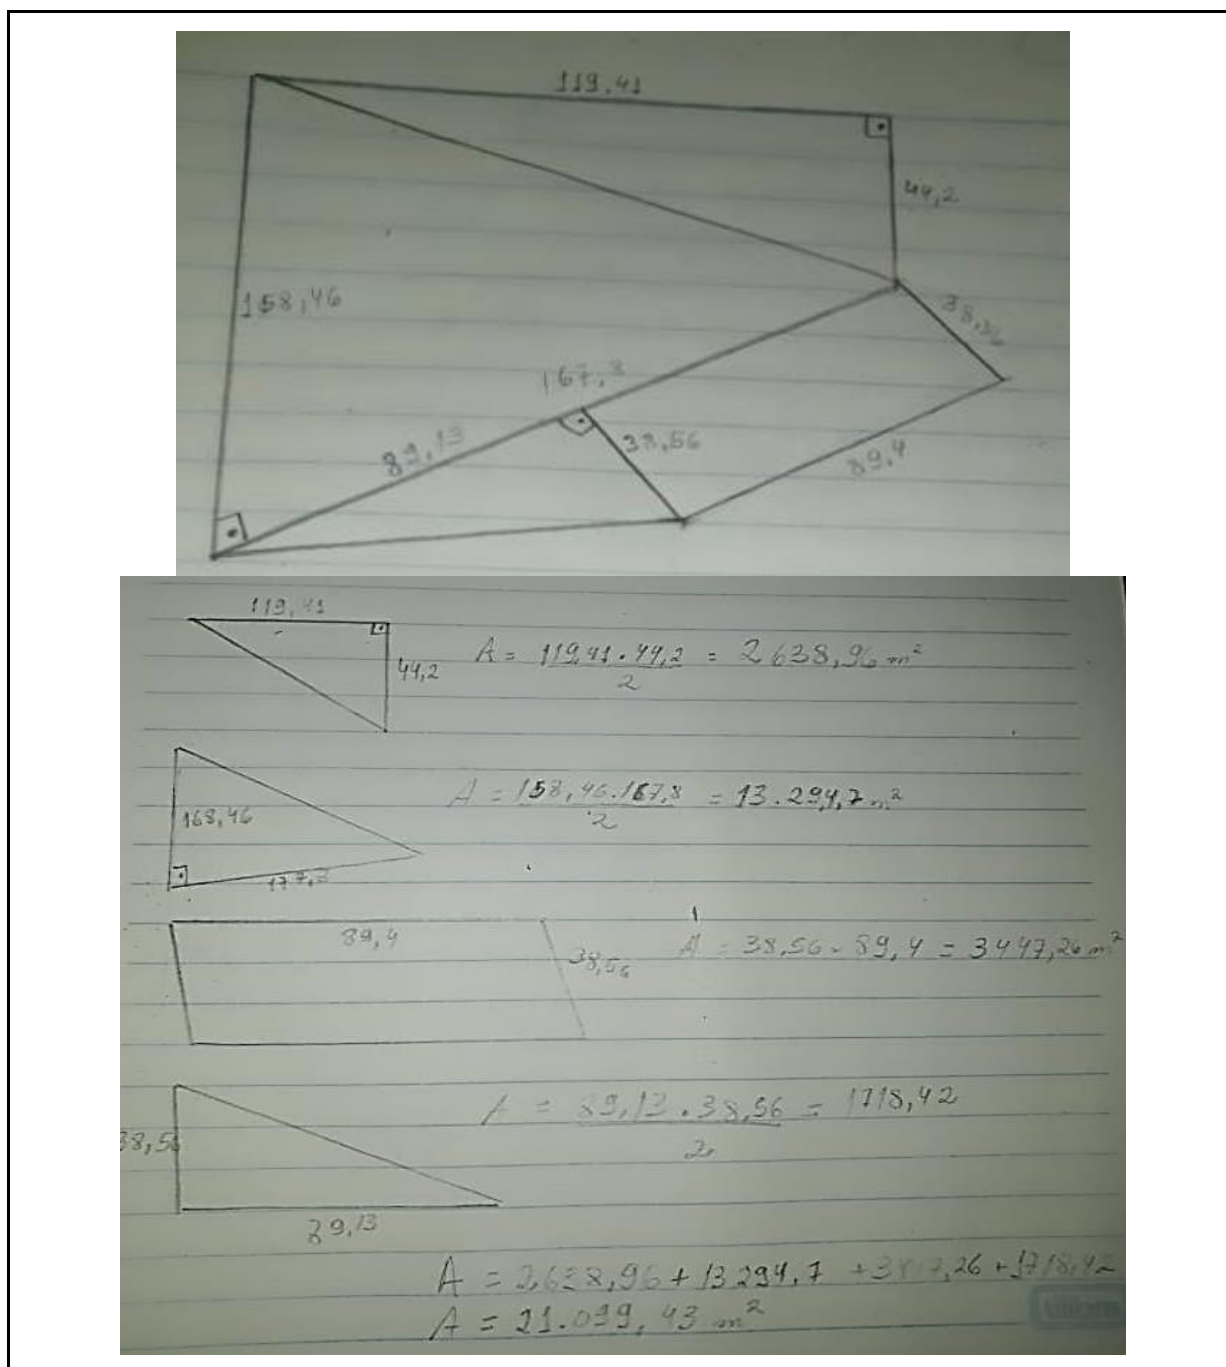 119.41
44,2
158,46
38,56
167,8
89,13
38,56
89,4
119,41
44,2
A = 119,41 . 44,2 = 2638,96 m²
2
168,46
A = 158,46.167,8 = 13.294,7 m²
2
177,3
89,4
38,56
A = 38,56 . 89,4 = 3447,26 m²
38,56
A = 89,13 . 38,56 = 1718,42
2
39,13
A = 2,638,96 + 13294,7 + 3447,26 + 1718,42
A = 21.099,43 m²